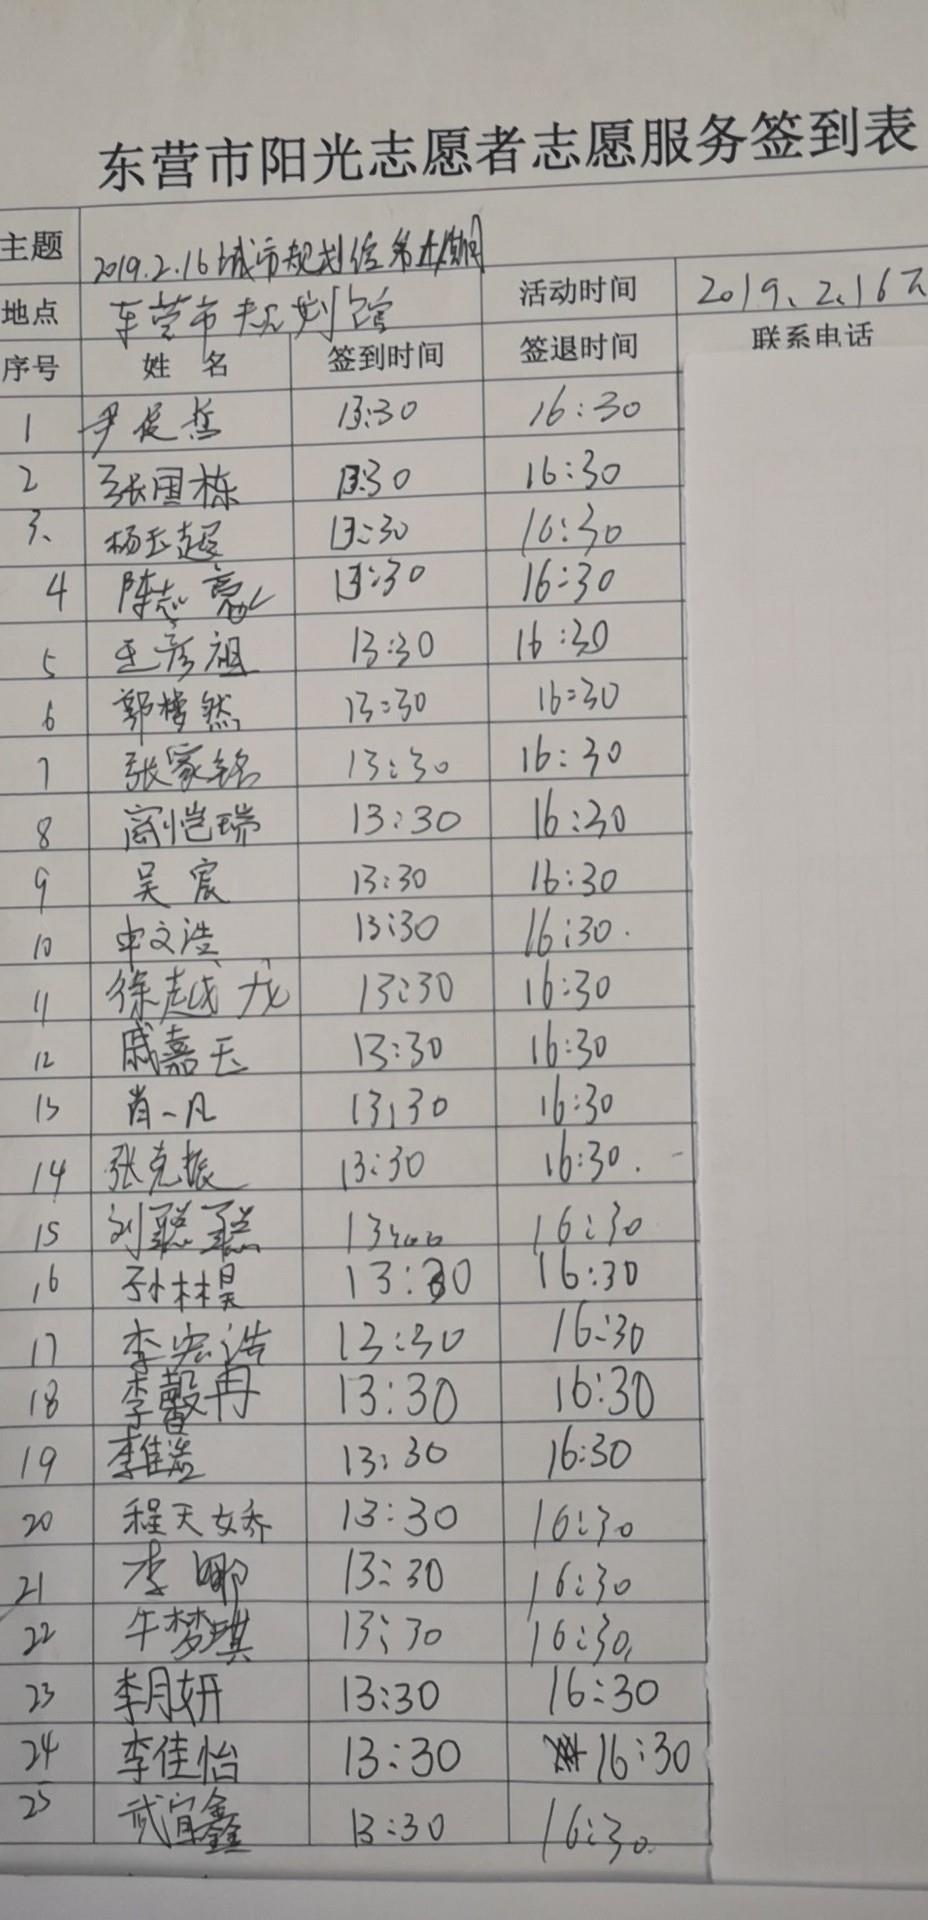 东营市阳光志愿者志愿服务签到表
主题 2019.2.16城市规划馆第 期
地点 东营市规划馆 活动时间 2019.2.16
序号 姓名 签到时间 签退时间 联系电话
1 尹俊哲 13:30 16:30
2 张国栋 13:30 16:30
3、 杨玉超 13:30 16:30
4 陈志亮 13:30 16:30
5 王彦祖 13:30 16:30
6 郭梦然 13:30 16:30
7 张家铭 13:30 16:30
8 高恺瑞 13:30 16:30
9 吴宸 13:30 16:30
10 申文浩 13:30 16:30.
11 徐越龙 13:30 16:30
12 戚嘉玉 13:30 16:30
13 肖一凡 13:30 16:30
14 张克振 13:30 16:30.
15 刘聪聪 16:30
16 孙林昊 13:30 16:30
17 李宏浩 13:30 16:30
18 李馨冉 13:30 16:30
19 李佳浩 13:30 16:30
20 程天娇 13:30 16:30
21 李娜 13:30 16:30
22 牛梦琪 13:30 16:30
23 李月妍 13:30 16:30
24 李佳怡 13:30 16:30
25 武宜鑫 13:30 16:30